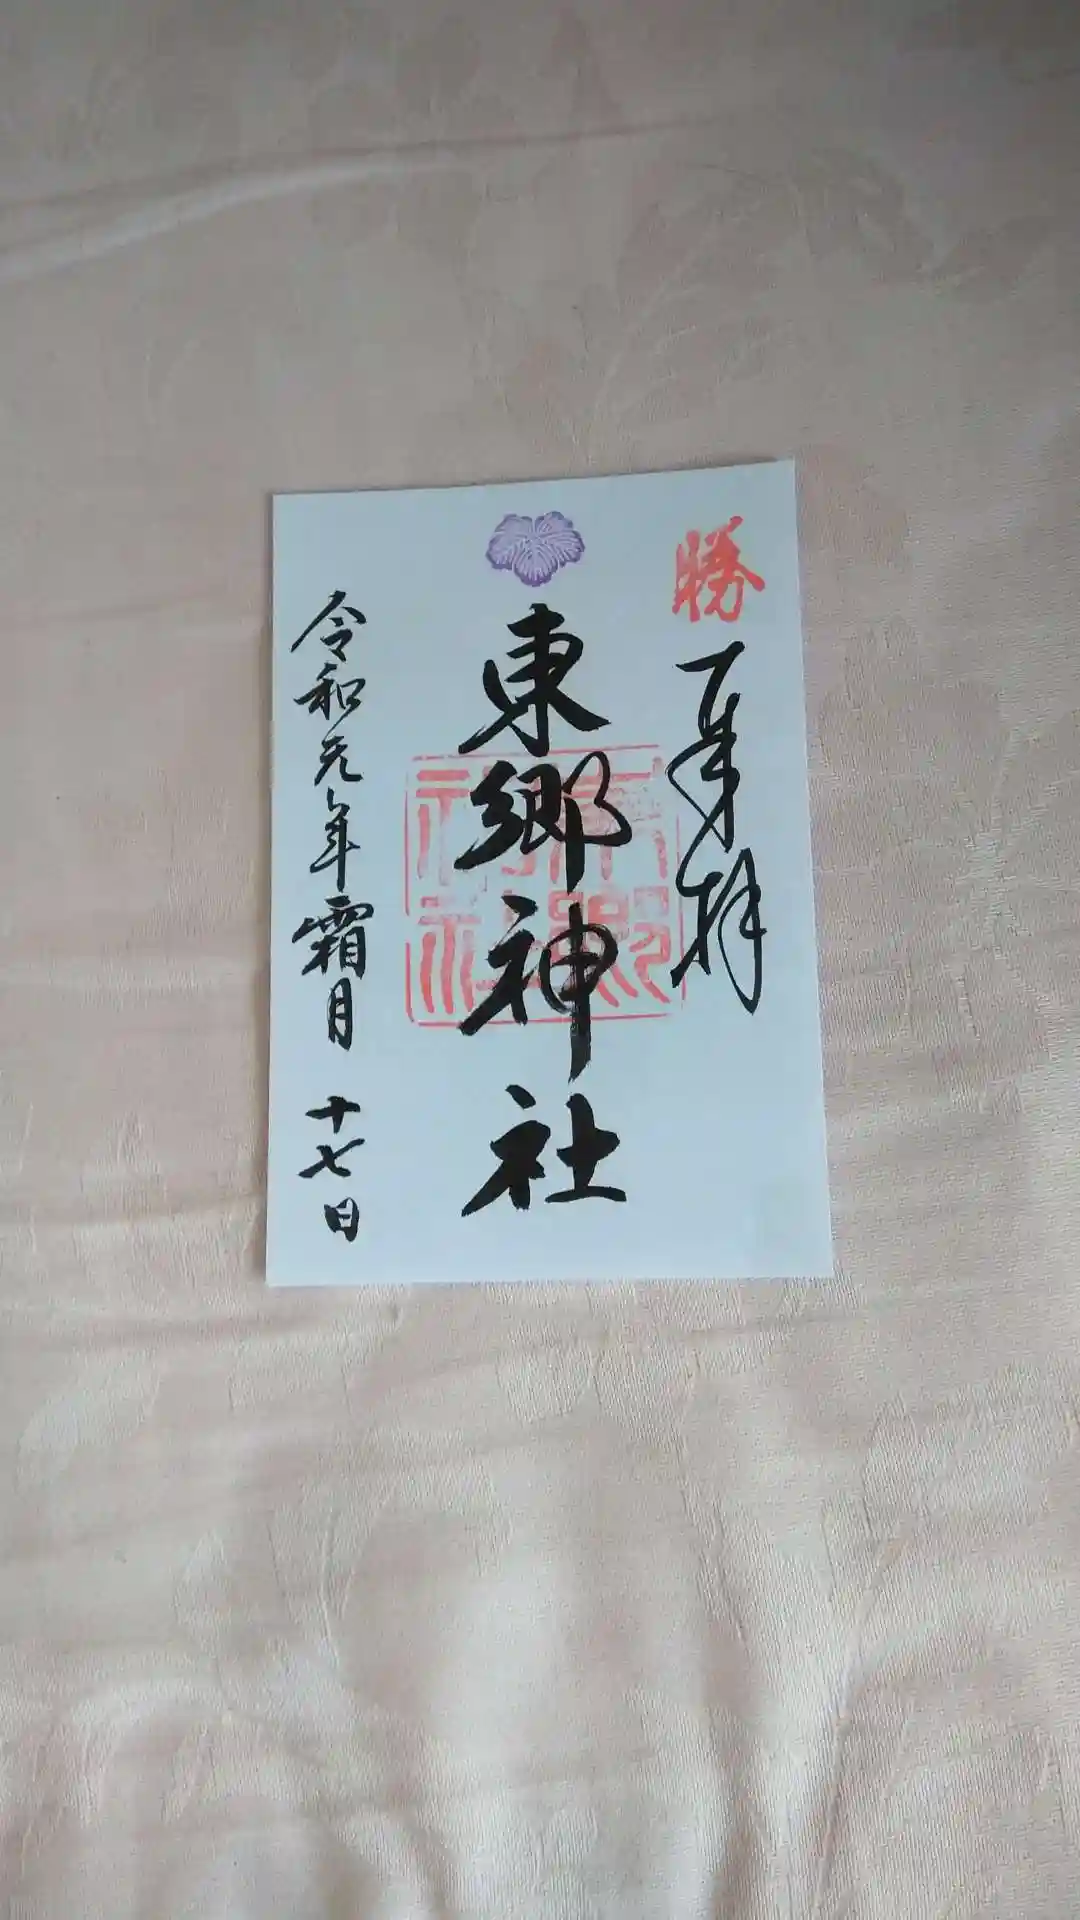 勝
奉拝
東郷神社
東郷神社
令和元年霜月十七日